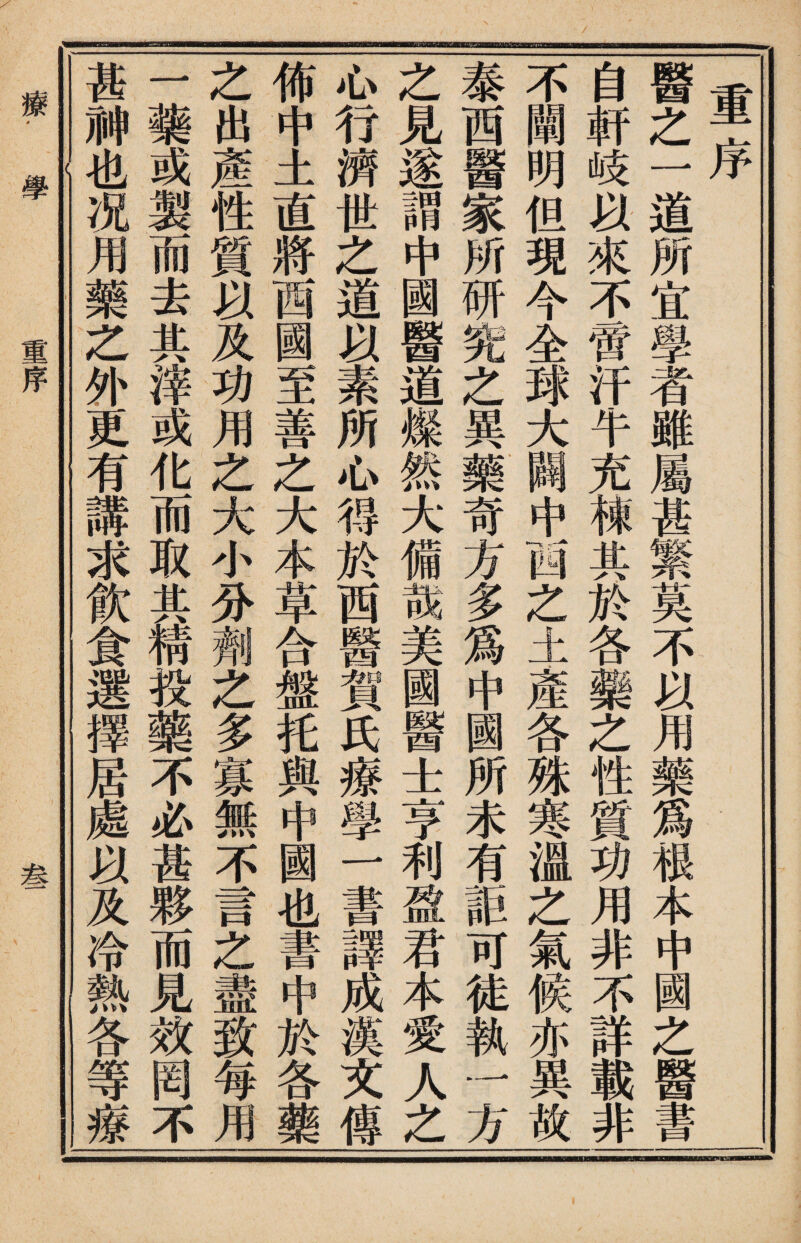 重序
醫之一道所宜學者雖屬甚繁莫不以用藥爲根本中國之醫書
自軒岐以來不啻汗牛充棟其於各藥之性質功用非不詳載非
不闡明但現今全球大闢中西之土產各殊寒溫之氣候亦異故
泰西醫家所研究之異藥奇方多爲中國所未有詎可徒執一方
之見遂謂中國醫道燦然大備哉美國醫士亨利盈君本愛人之
心行濟世之道以素所心得於西醫賀氏療學一書譯成漢文傳
佈中土直將西國至善之大本草合盤托與中國也書中於各藥
之出產性質以及功用之大小分劑之多寡無不言之盡致每用
一藥或製而去其滓或化而取其精投藥不必甚夥而見效罔不
甚神也况用藥之外更有講求飲食選擇居處以及冷熱各等療
療學
重序
叁